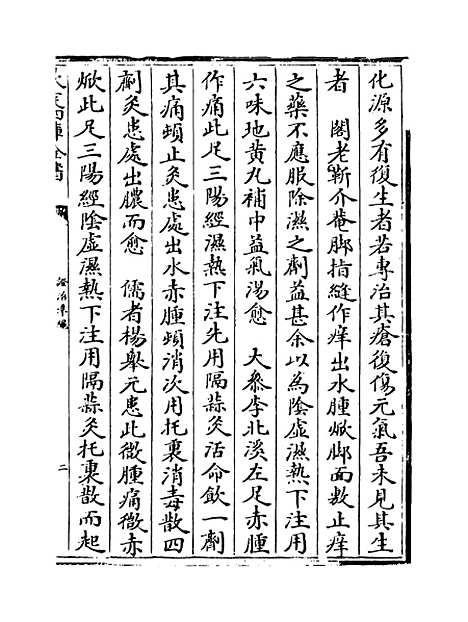 化源多有復生者若專治其瘡復傷元氣吾未見其生
者　閣老靳介菴脚指縫作痒出水腫焮脚面敷止痒
之藥不應服除濕之劑益甚余以為陰虛濕熱下注用
六味地黄丸補中益氣湯愈　大叅李北溪左足赤腫
作痛此足三陽經濕熱下注先用隔蒜灸活命飲一劑
其痛頓止灸患處出水赤腫頓消次用托裏消毒散四
劑灸患處出膿而愈　儒者楊舉元患此微腫痛微赤
焮此足三陽經陰虛濕熱下注用隔蒜灸托裏散而起
證治凖繩
二